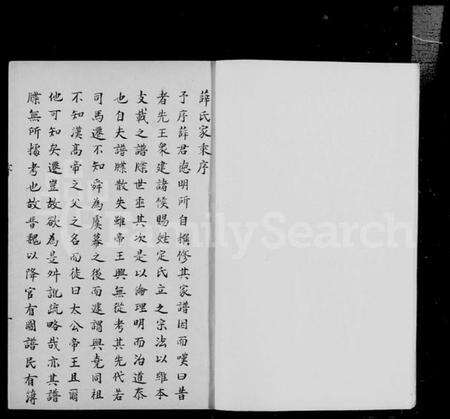 薛氏家乘序
予序薛君德明所自撰修其家譜因而嘆曰昔
者先王衆建諸侯賜姓定氏立之宗法以維本
支載之譜牒世其次是以倫理明而治道泰
也自夫譜牒散失雖帝王興無從考其先代若
司馬遷不知舜為虞幕之後而遽謂與堯同祖
不知漢高帝之父之名而徒曰太公帝王且爾
他可知矣遷豈故欲為是舛訛疏略哉亦其譜
牒無所據考也故晉魏以降官有圖譜民有簿
FamilySearch